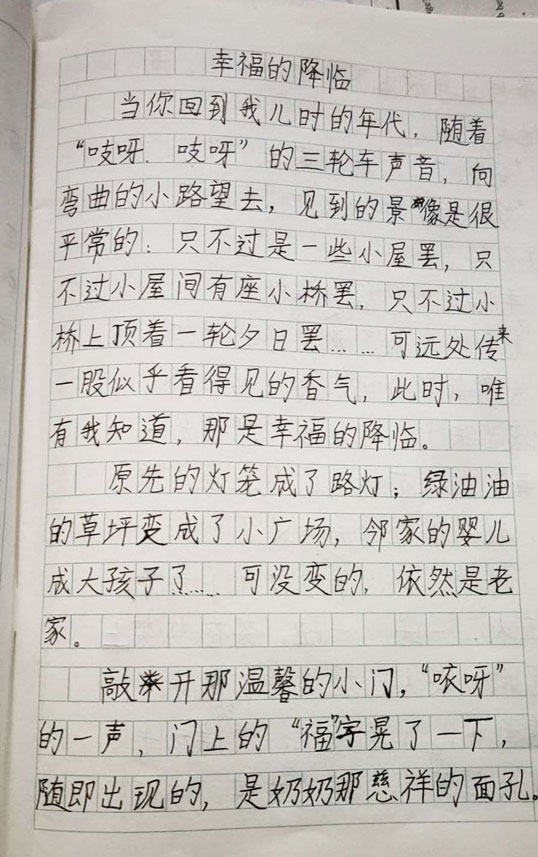 幸福的降临
当你回到我儿时的年代，随着
“吱呀．吱呀”的三轮车声音，向
弯曲的小路望去，见到的景像是很
平常的：只不过是一些小屋罢，只
不过小屋间有座小桥罢，只不过小
桥上顶着一轮夕日罢……可远处传来
一股似乎看得见的香气，此时，唯
有我知道，那是幸福的降临。
原先的灯笼成了路灯；绿油油
的草坪变成了小广场，邻家的婴儿
成大孩子了……可没变的，依然是老
家。
敲开那温馨的小门，“吱呀”
的一声，门上的“福”字晃了一下，
随即出现的，是奶奶那慈祥的面孔。